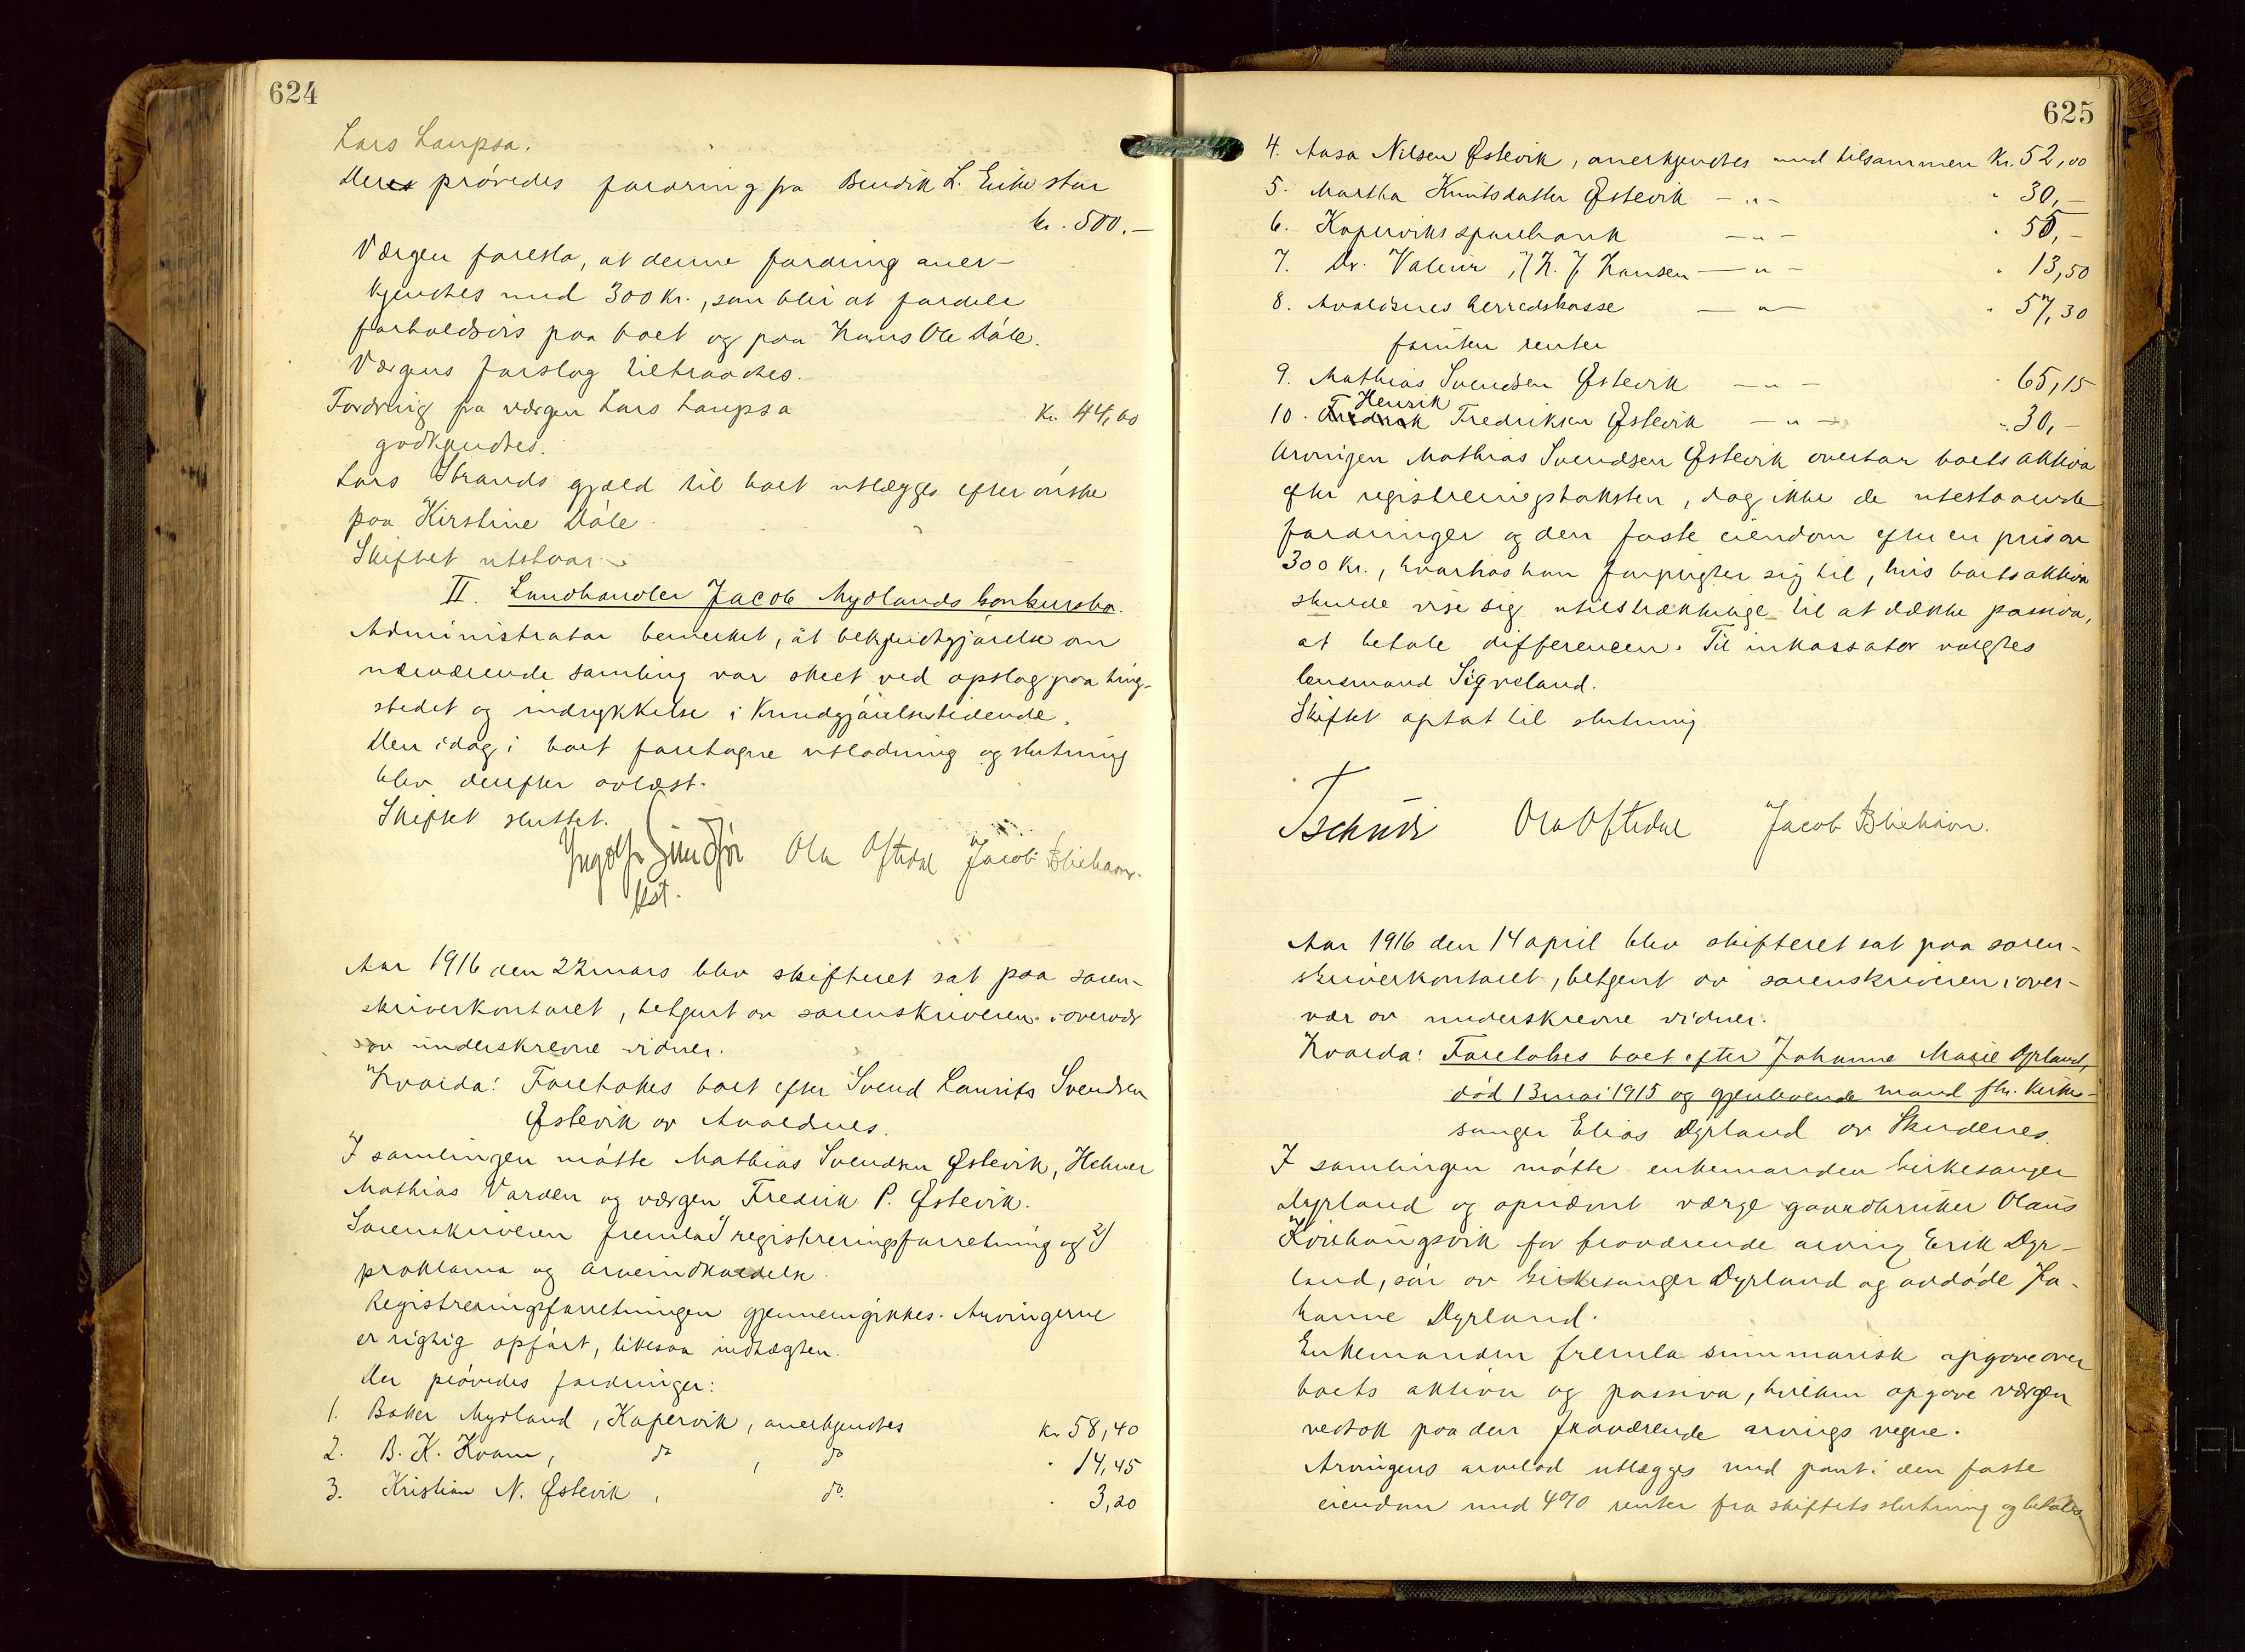 624
Lars Laupsa.
Der prøvedes fordring fra Bendik L. Eikestøl
kr. 500.-
Værgen foreslo, at denne fordring aner-
kjendtes med 300 kr., som blir at fordele
forholdsvis paa boet og paa Hans Ole Døle.
Værgens forslag tiltraadtes.
Fordring fra værgen Lars Laupsa Kr. 44,60
godkjendtes.
Lars Strands gjæld til boet utlægges efter ønske
paa Kirstine Døle.
Skiftet utstaar.
II. Landhandler Jacob Mydlands konkursbo.
Administrator bemerket, at bekjendtgjørelse om
nærværende samling var skeet ved opslag paa ting-
stedet og indrykkelse i Kundgjørelsestidende.
Den idag i boet foretagne utlodning og slutning
blev derefter avlæst.
Skiftet sluttet.
Ingolf Sundfør Ola Oftedal Jacob Bliehavn.
kst.
Aar 1916 den 22 mars blev skifteret sat paa soren-
skriverkontoret, betjent av sorenskriveren i overvær
av underskrevne vidner.
Hvorda: Foretokes boet efter Svend Laurits Svendsen
Østevik av Avaldnes.
I samlingen møtte Mathias Svendsen Østevik, Helmer
Mathias Varden og værgen Fredrik P. Østevik.
Sorenskriveren fremla 1) registreringsforretning og 2)
proklama og arveindkaldelse.
Registreringsforretningen gjennemgikkes. Arvingerne
er rigtig opført, likesaa indtægten.
Der prøvedes fordringer:
1. Baker Mydland, Kopervik, anerkjendtes kr 58,40
2. B. K. Kvam, do , do " 14,45
3. Kristian N. Østevik , do. " 3,20
625
4. Aasa Nilsen Østevik, anerkjendtes med tilsammen Kr. 52,00
5. Martha Knutsdatter Østevik -"- " 30,-
6. Koperviks sparebank -"- " 50,-
7. Dr. Valeur, / H. J. Hansen -"- " 13,50
8. Avaldsnes herredskasse -"- " 57,30
foruten renter
9. Mathias Svendsen Østevik -"- " 65,15
Henrik
10. Fredrik Fredriksen Østevik -"- " 30,-
Arvingen Mathias Svendsen Østevik overtar boets aktiva
efter registreringstaksten, dog ikke de utestaaende
fordringer og den faste eiendom efter en pris av
300 kr., hvorhos han forpligter sig til, hvis boets aktiva
skulde vise sig utilstrækkelige til at dække passiva,
at betale differencen. Til inkassator valgtes
lensmand Sigveland.
Skiftet optat til slutning.
Tschudi Ola Oftedal Jacob Bliehavn.
Aar 1916 den 14 april blev skifteret sat paa soren-
skriverkontoret, betjent av sorenskriveren i over-
vær av underskrevne vidner.
Hvorda: Foretokes boet efter Johanne Marie Dyrland,
død 13 mai 1915 og gjenlevende mand fhv. kirke-
sanger Elias Dyrland av Skudenes.
I samlingen møtte enkemanden kirkesanger
Dyrland og opnævnt værge gaardbruker Olaus
Kvilhaugsvik for fraværende arving Erik Dyr-
land, søn av kirkesanger Dyrland og avdøde Jo-
hanne Dyrland.
Enkemanden fremla summarisk opgave over
boets aktiva og passiva, hvilken opgave værgen
vedtok paa den fraværende arvings vegne.
Arvingens arvelod utlægges med pant i den faste
eiendom med 4% renter fra skiftets slutning og betales